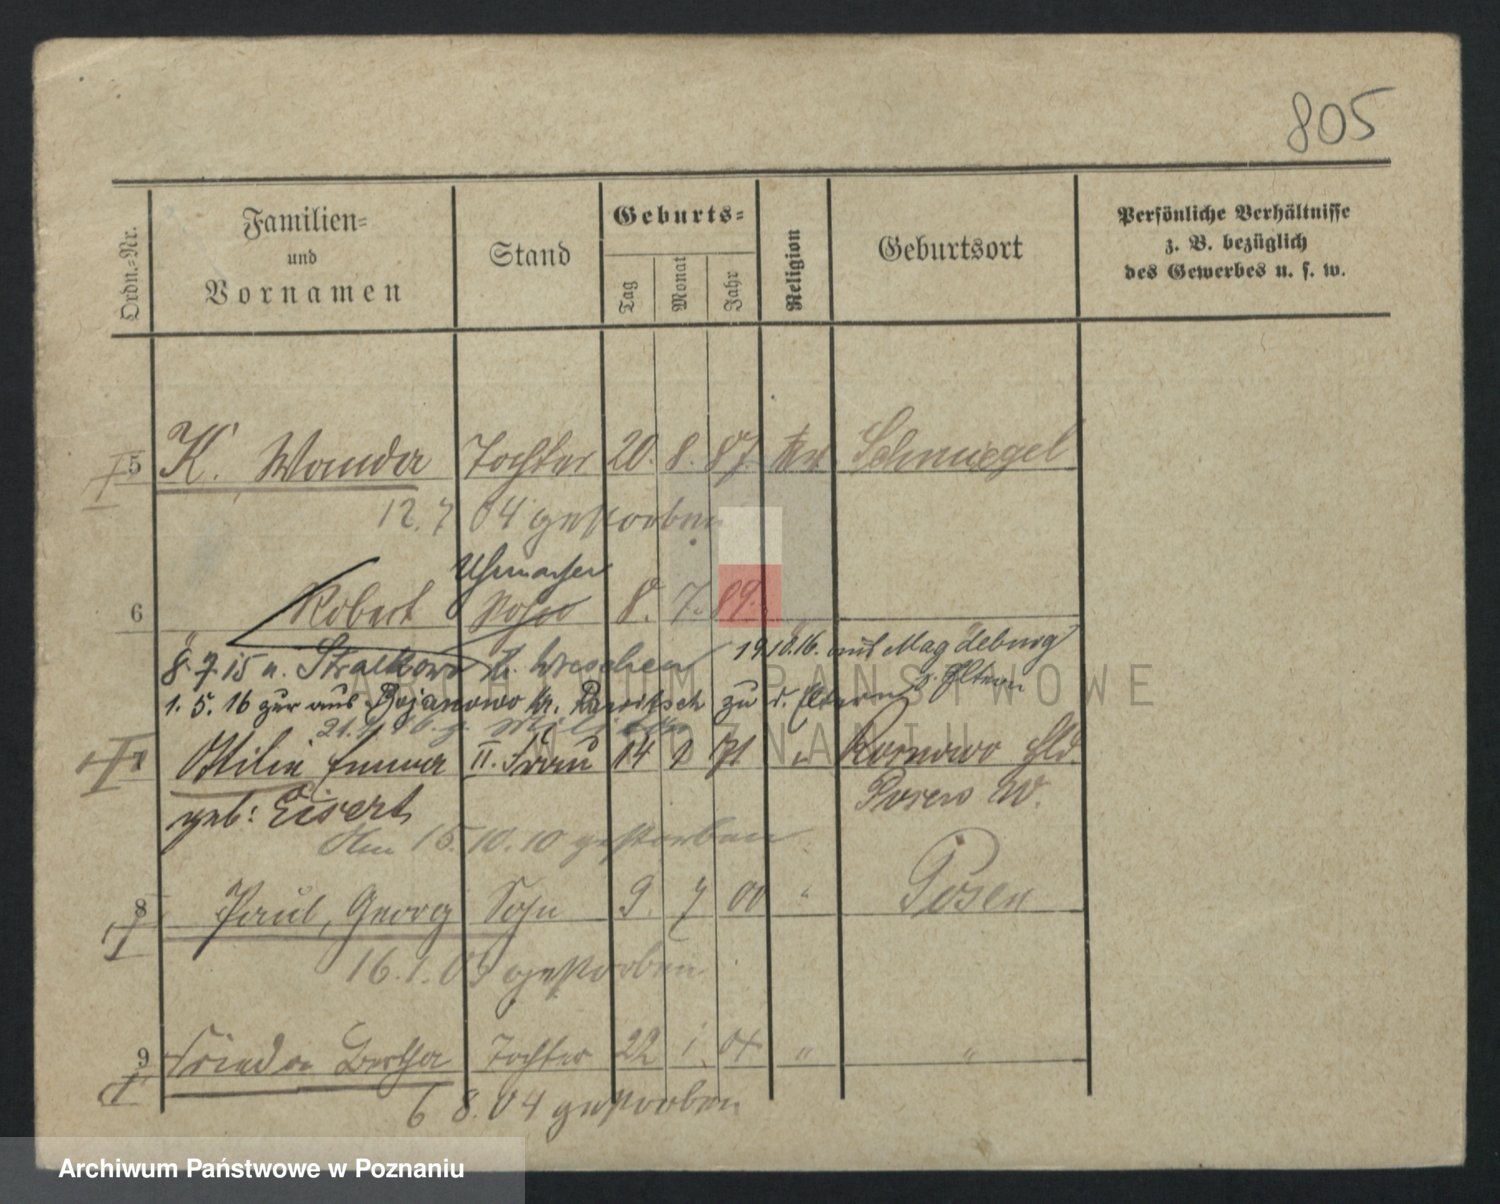 805
Ordn.-Nr.
Familien- und Vornamen
Stand
Geburts-
Tag Monat Jahr
Religion
Geburtsort
Persönliche Verhältnisse
z. B. bezüglich
des Gewerbes u. s. w.
5 K. Wanda Tochter 20. 8. 87 Schmiegel
12. 7 04 gestorben
Uhrmacher
6 Robert Sohn 8. 7. 89.
8. 7. 15 n. Stralkowo Kr. Wreschen 19.10.16. aus Magdeburg
z. Eltern
1. 5. 16 zur aus Bojanowo Kr. Rawitsch zu d. Eltern
7 Ottilie Emma II. Frau 14 9 71 "
Posen W.
geb: Eisert
Am 15.10.10 gestorben
8 Paul, Georg Sohn 9. 7 00 " Posen
16.1.05 gestorben
9 Frieda Bertha Tochter 22 1. 04 " "
6 8. 04 gestorben
ARCHIWUM PAŃSTWOWE
W POZNANIU
Archiwum Państwowe w Poznaniu